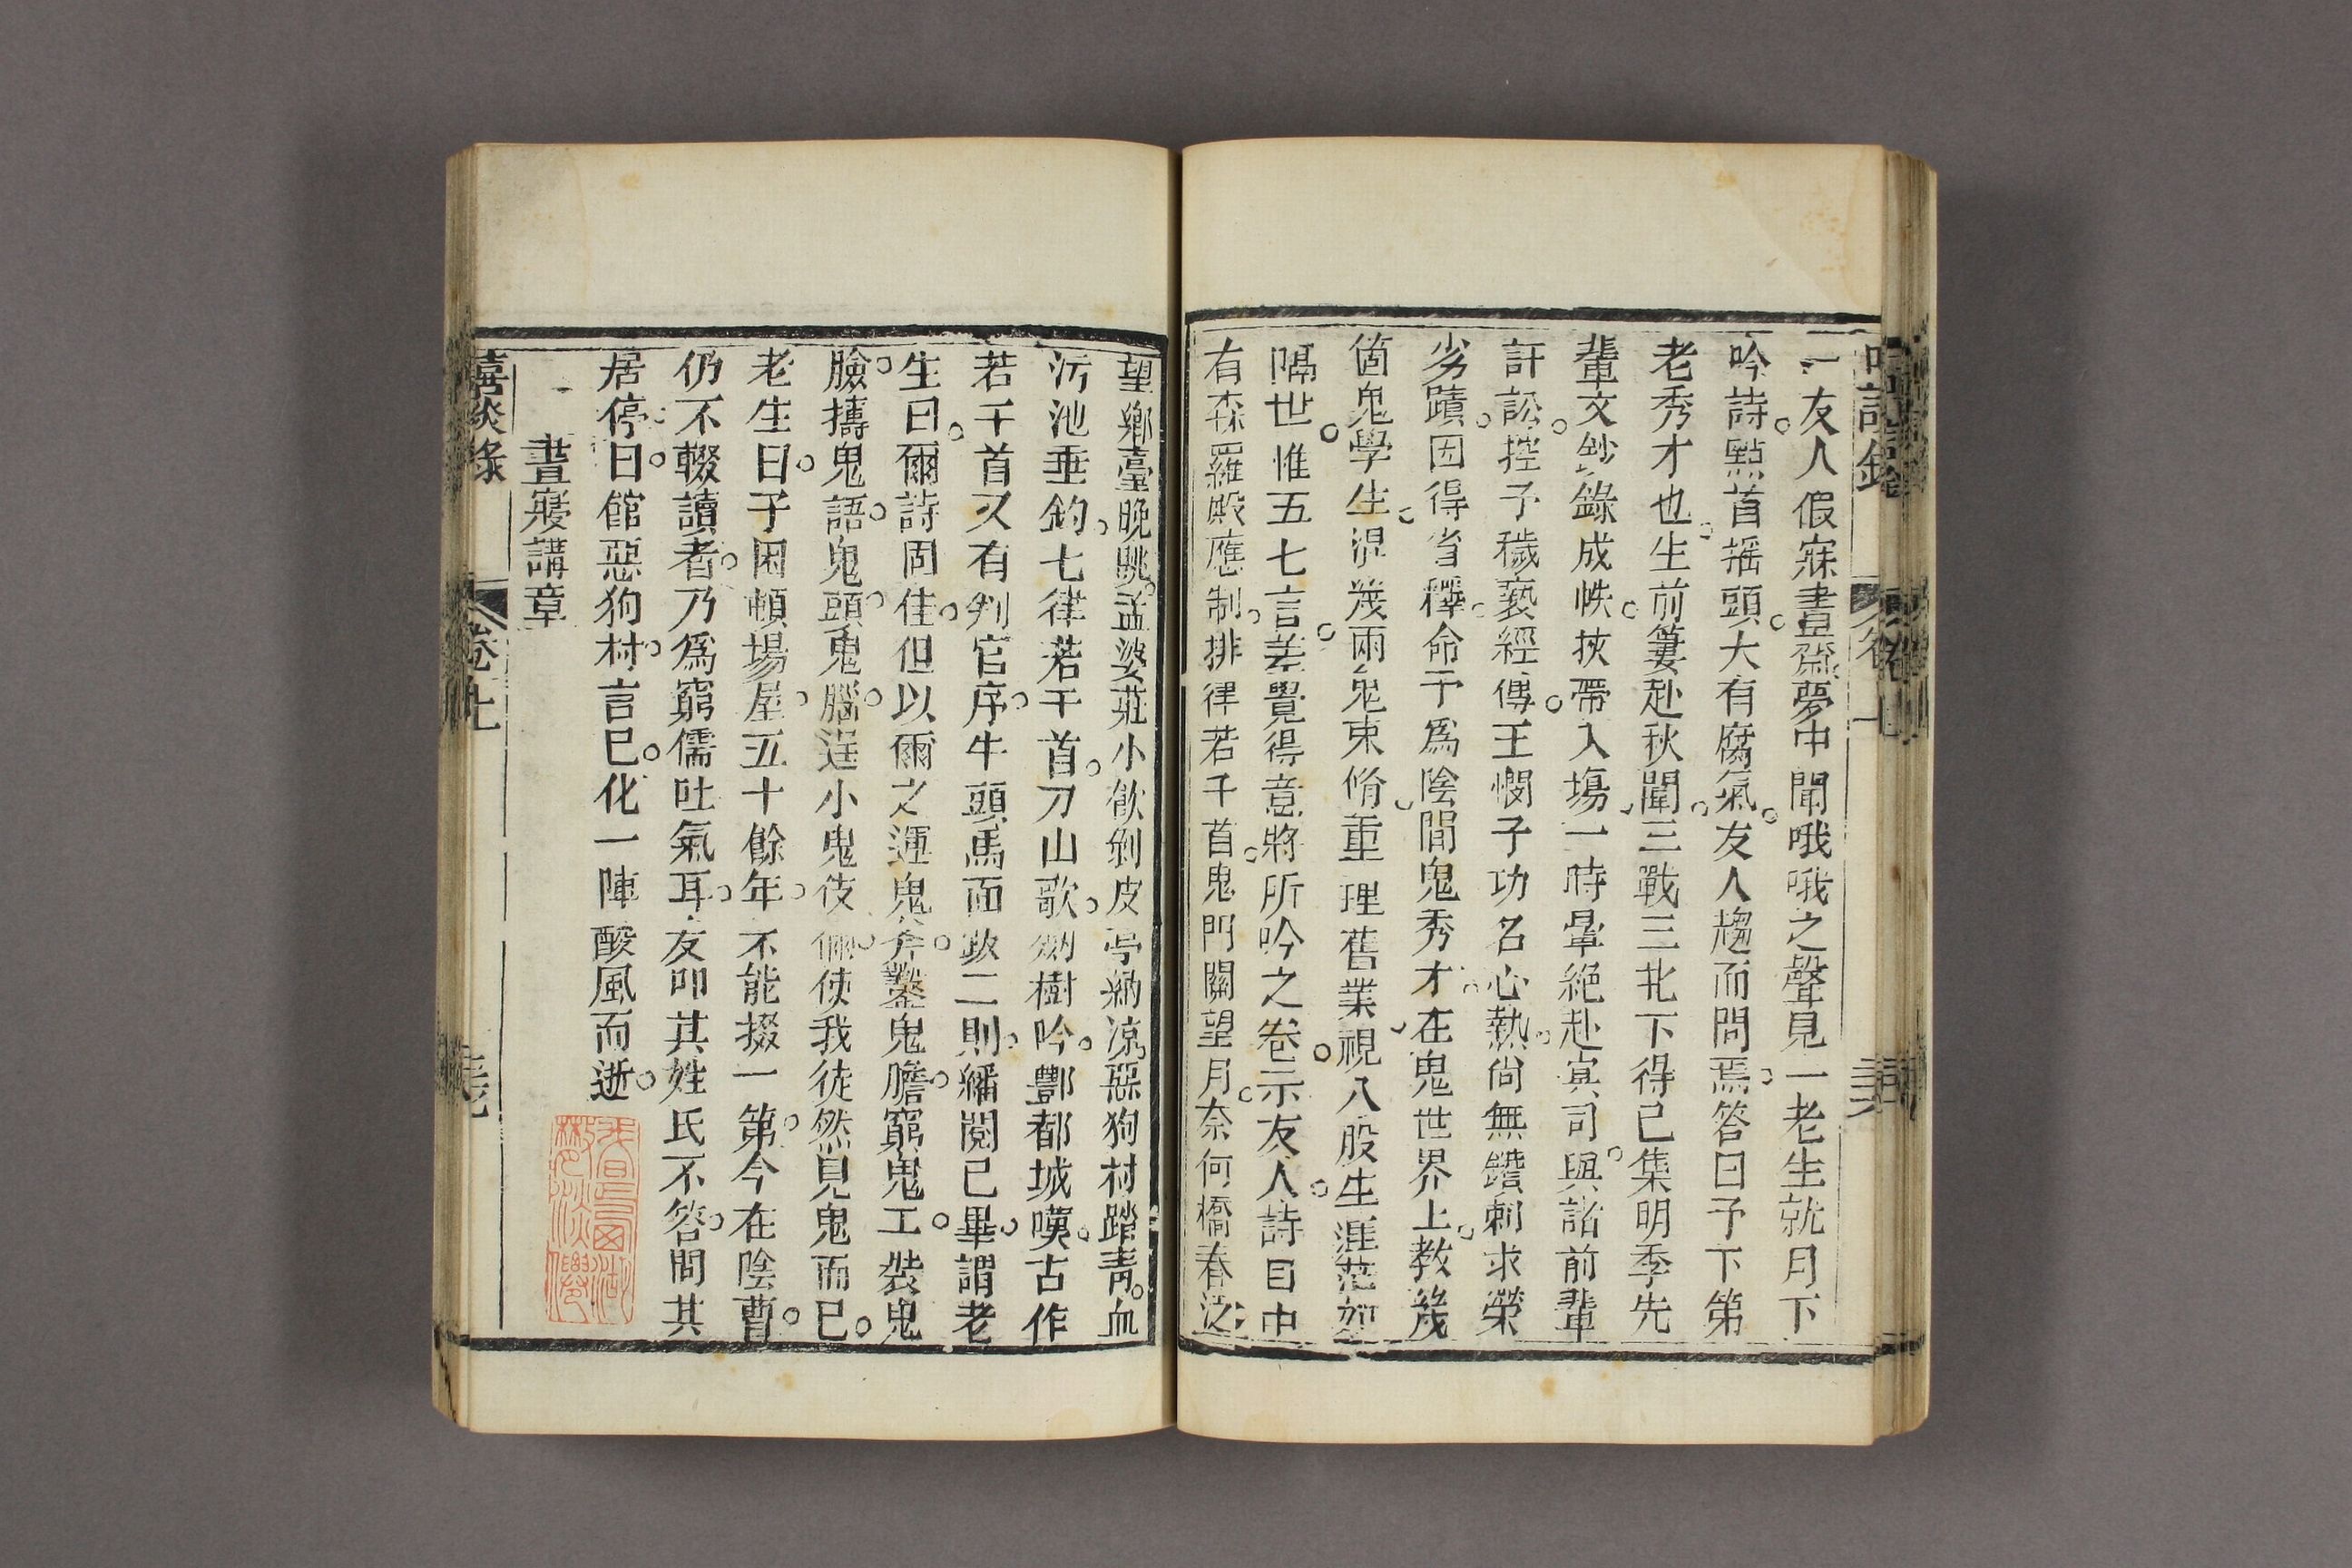 一友人假寐晝齋夢中聞哦哦之聲見一老生就月下
吟詩點首搖頭大有腐氣友人趨而問焉答曰予下第
老秀才也生前簍赴秋闈三戰三北下得已集明季先
輩文鈔錄成帙挾帶入場一時暈絕赴寘司與諸前輩
訐訟控予穢褻經傳王憫予功名心熱尙無鑽刺求榮
劣蹟因得省釋命予爲陰間鬼秀才在鬼世界上教幾
箇鬼學生混幾兩鬼束脩重理舊業視八股生涯茫如
隔世惟五七言差覺得意將所吟之卷示友人詩目中
有森羅殿應制排律若千首鬼門關望月奈何橋春泛
望鄉臺晚眺孟婆莊小飲剝皮亭納凉惡狗村踏靑血
汚池垂釣七律若干首刀山歌劍樹吟酆都城嘆古作
若干首又有判官序牛頭馬面跋二則繙閱已畢謂老
生曰爾詩固佳但以爾之運鬼斧鑿鬼膽窮鬼工裝鬼
臉擣鬼語鬼頭鬼腦逞小鬼伎倆使我徒然見鬼而已
老生曰予困頓場屋五十餘年不能掇一第今在陰曹
仍不輟讀者乃爲窮儒吐氣耳友叩其姓氏不答問其
居停曰館惡狗村言已化一陣酸風而逝
晝寢講章
嘻談錄
卷上